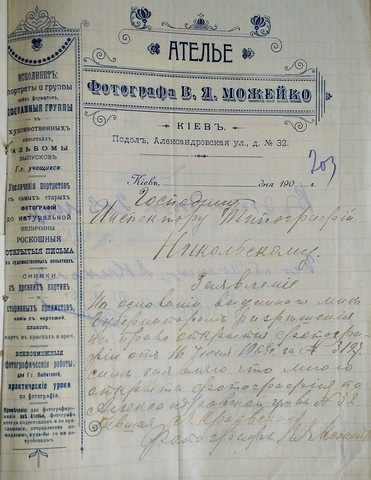 АТЕЛЬЕ
Фотографа В. Я. МОЖЕЙКО
КІЕВЪ.
Подолъ, Александровская ул., д. № 32.
Кіевъ, дня 190 г.
203
ИСПОЛНЯЕТЪ:
портреты и группы
всѣхъ форматовъ,
СОСТАВНЫЯ ГРУППЫ
въ
художественныхъ
виньеткахъ,
АЛЬБОМЫ
ВЫПУСКОВЪ
Г.г. учащихся.
Увеличенія портретовъ
съ самыхъ старыхъ
ФОТОГРАФІЙ
ДО НАТУРАЛЬНОЙ
ВЕЛИЧИНЫ
РОСКОШНЫЯ
ОТКРЫТЫЯ ПИСЬМА
въ художественныхъ виньеткахъ
СНИМКИ
съ древнихъ картинъ
и
старинныхъ предметовъ
съ чертежей,
плановъ,
картъ въ краскахъ и проч.
ВСЕВОЗМОЖНЫЯ
фотографическія работы.
для Г.г. любителей
практическіе уроки
по фотографіи.
Господину
Инспектору Типографій
Никольскому.
Заявленіе
На основаніи выданнаго мнѣ
Губернаторомъ разрѣшенія
на право открытія фотогра-
фіи отъ 16 Іюня за №
симъ заявляю что мною
открыта фотографія по
Александровской улицѣ № 32
Фотографъ В. Я. Можейко